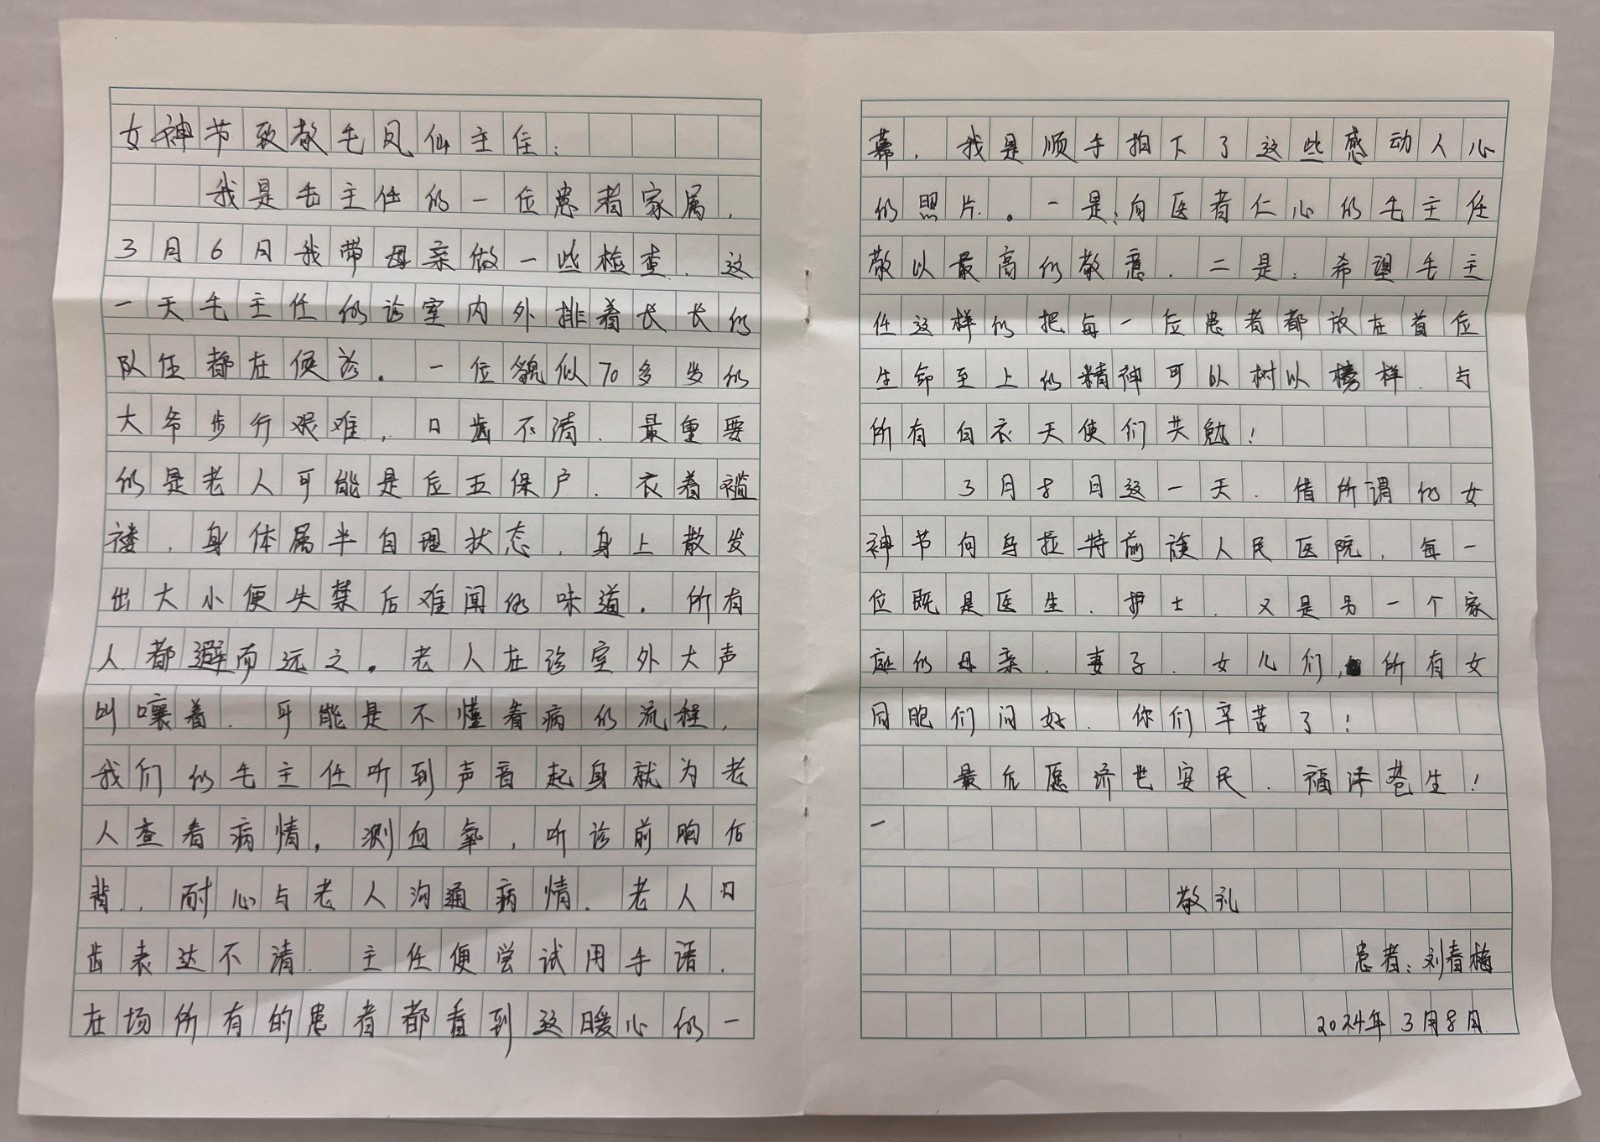 女神节致敬毛凤仙主任：
我是毛主任的一位患者家属，
3月6日我带母亲做一些检查，这
一天毛主任的诊室内外排着长长的
队伍都在候诊。一位貌似70多岁的
大爷步行艰难，口齿不清，最重要
的是老人可能是位五保户，衣着褴
褛，身体属半自理状态，身上散发
出大小便失禁后难闻的味道，所有
人都避而远之。老人在诊室外大声
叫嚷着，可能是不懂看病的流程，
我们的毛主任听到声音起身就为老
人查看病情，测血氧，听诊前胸后
背，耐心与老人沟通病情，老人口
齿表达不清，主任便尝试用手语，
在场所有的患者都看到这暖心的一
幕，我是顺手拍下了这些感动人心
的照片。一是：向医者仁心的毛主任
敬以最高的敬意，二是：希望毛主
任这样的把每一位患者都放在首位
生命至上的精神可以树以榜样，与
所有白衣天使们共勉！
3月8日这一天，借所谓的女
神节向乌拉特前旗人民医院，每一
位既是医生、护士、又是另一个家
庭的母亲、妻子、女儿们，所有女
同胞们问好，你们辛苦了！
最后愿济世安民，福泽苍生！
一
敬礼
患者：刘春梅
2024年3月8日